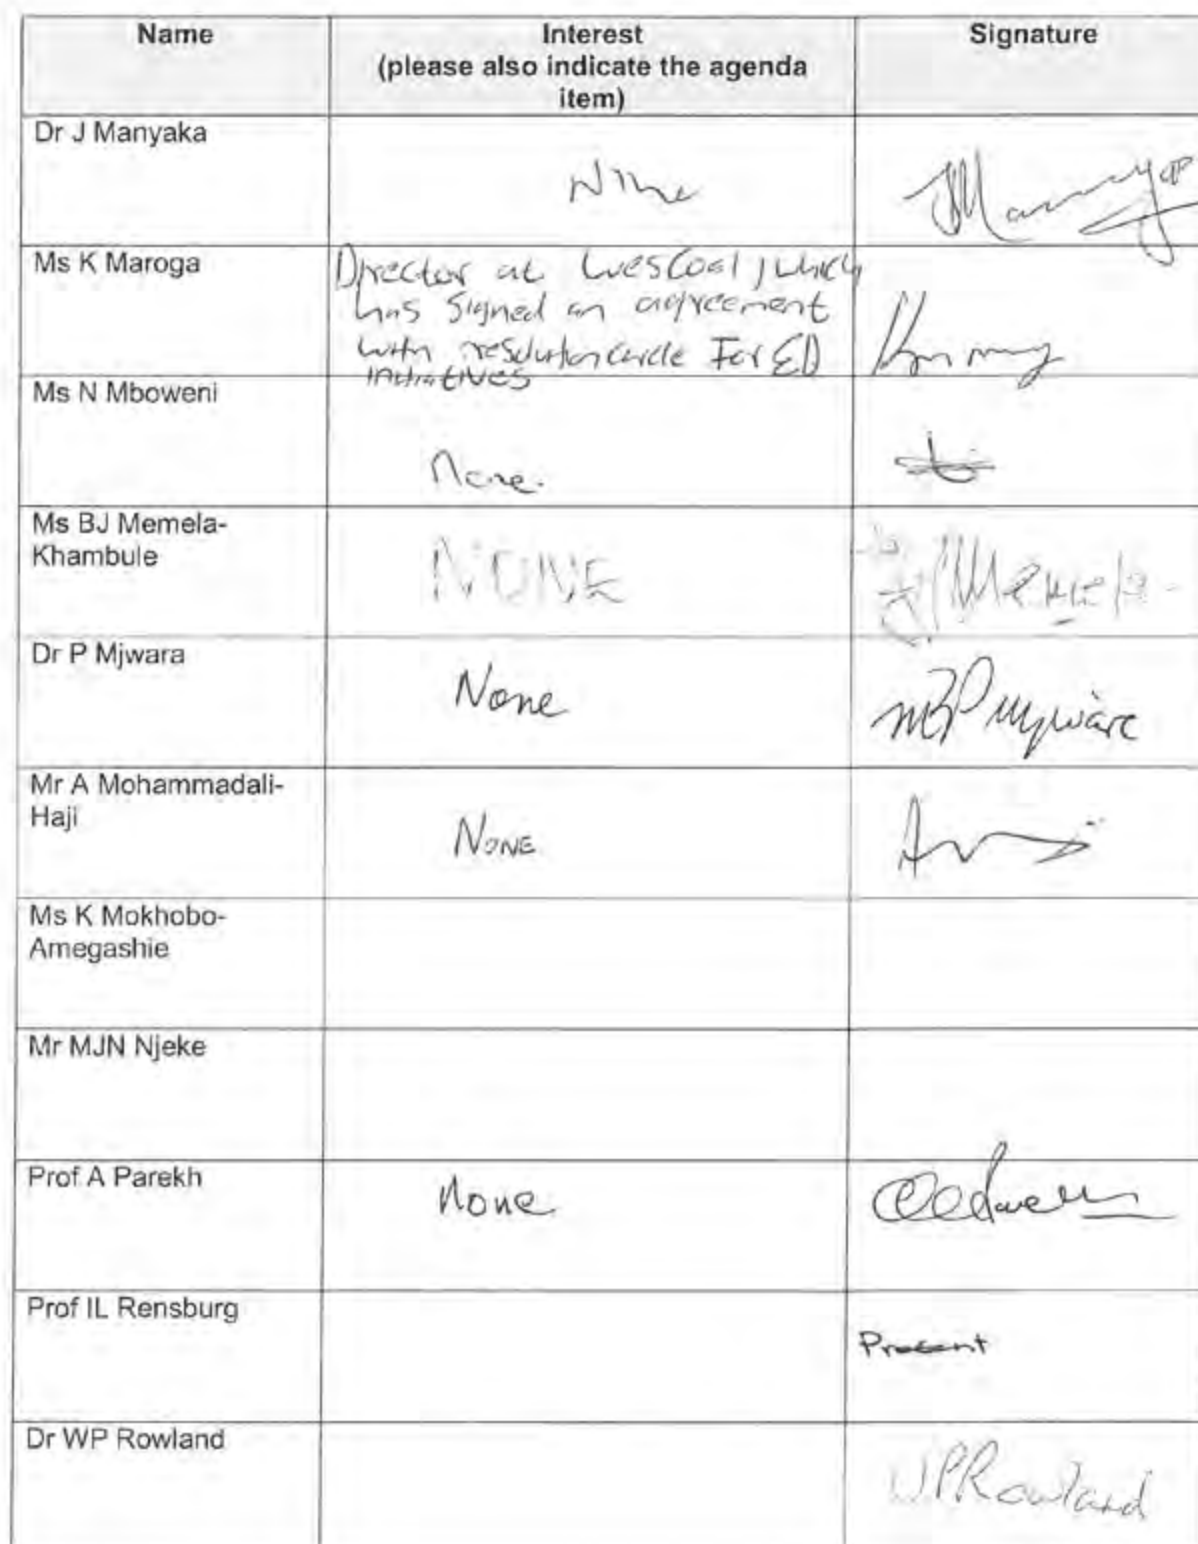 Name Interest Signature
(please also indicate the agenda
item)
Dr J Manyaka
None
Ms K Maroga
Director at WesCoal, which
has signed an agreement
with resolution circle For ED
initiatives
Ms N Mboweni
None.
Ms BJ Memela-
Khambule
NONE
Memela
Dr P Mjwara
None
Mr A Mohammadali-
Haji
NONE
Ms K Mokhobo-
Amegashie
Mr MJN Njeke
Prof A Parekh
None
Prof IL Rensburg
Present
Dr WP Rowland
WPRowland